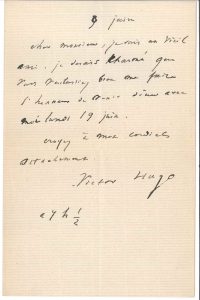 9 juin
cher monsieur, je suis un vieil
ami. je serais charmé que
vous voulussiez bien me faire
l'honneur de venir dîner avec
moi lundi 19 juin.
croyez à mon cordial
attachement.
Victor Hugo
à 7 h 1/2